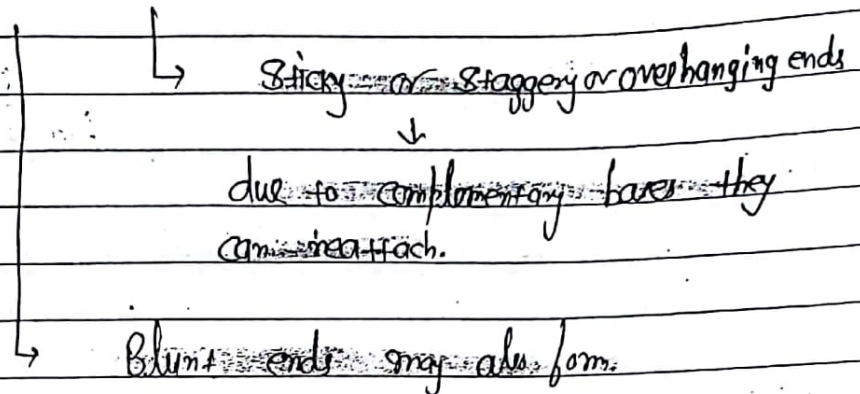 ↳ Sticky or staggery or overhanging ends
↓
due to complementary bases they
can reattach.
↳ Blunt ends may also form.